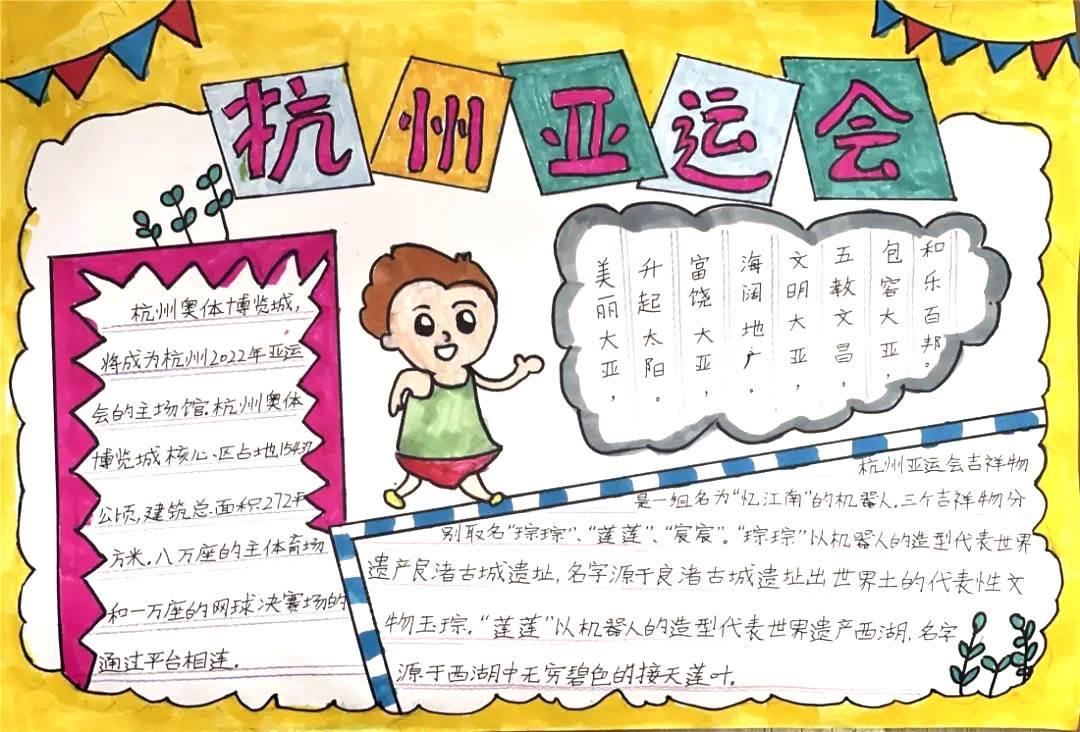 杭州亚运会
杭州奥体博览城,
将成为杭州2022年亚运
会的主场馆.杭州奥体
博览城核心区占地154.37
公顷,建筑总面积272平
方米.八万座的主体育场
和一万座的网球决赛场的
通过平台相连.
美丽大亚，
升起太阳。
富饶大亚，
海阔地广。
文明大亚，
五教文昌。
包容大亚，
和乐百邦。
杭州亚运会吉祥物
是一组名为“忆江南”的机器人.三个吉祥物分
别取名“琮琮”、“莲莲”、“宸宸”。“琮琮”以机器人的造型代表世界
遗产良渚古城遗址,名字源于良渚古城遗址出世界土的代表性文
物玉琮.“莲莲”以机器人的造型代表世界遗产西湖,名字
源于西湖中无穷碧色的接天莲叶.